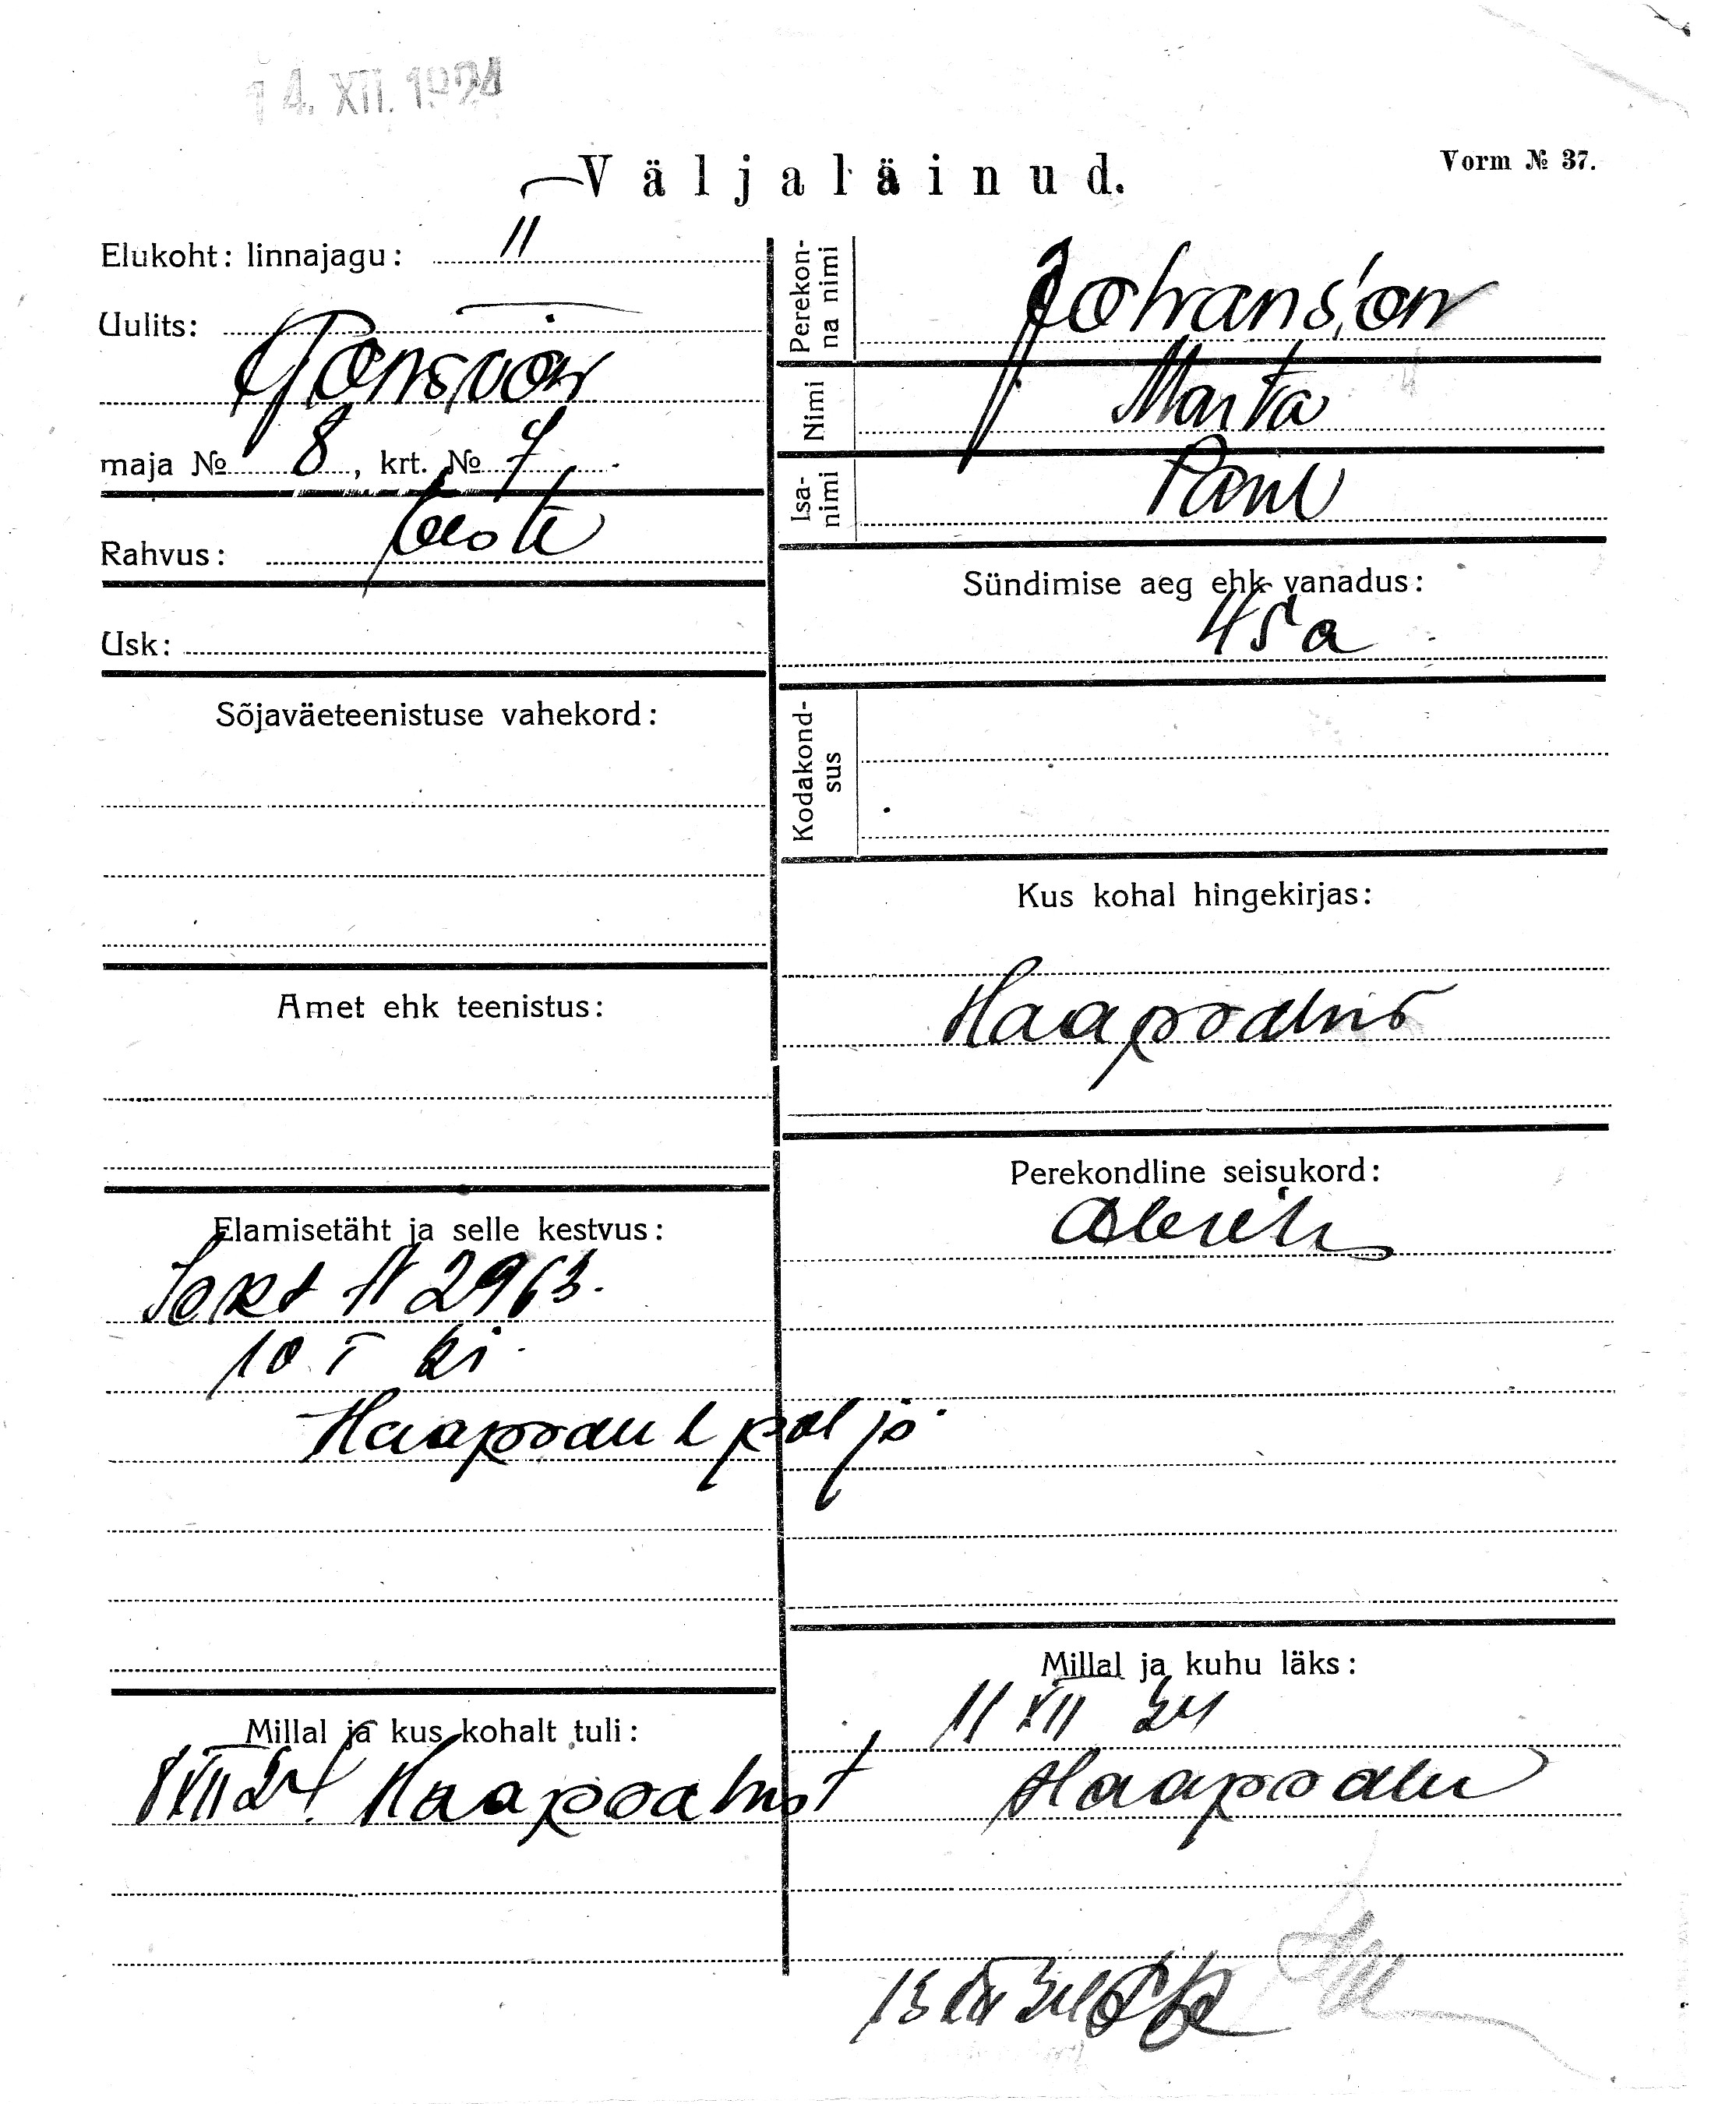 14. XII. 1924
Väljaläinud.
Vorm № 37.
Elukoht: linnajagu: II
Uulits:
Gonsiori
maja № 8, krt. № 7
Rahvus: eesti
Usk:
Sõjaväeteenistuse vahekord:
Amet ehk teenistus:
Elamisetäht ja selle kestvus:
N 2963.
10 I
Haapsalu
Millal ja kus kohalt tuli:
8 XII 24. Haapsalust
Perekon-
na nimi
Johanson
Nimi
Marta
Isa-
nimi
Paul
Sündimise aeg ehk vanadus:
45 a
Kodakond-
sus
Kus kohal hingekirjas:
Haapsalus
Perekondline seisukord:
abielu
Millal ja kuhu läks:
11 XII 24
Haapsalu